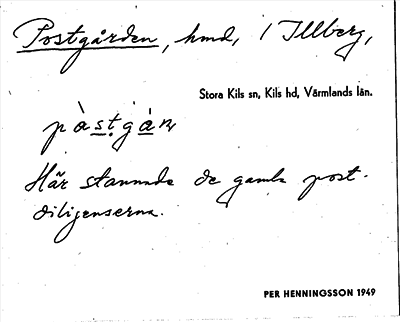 Postgården, hmd, i Illberg,
Stora Kils sn, Kils hd, Värmlands län.
pàstgá̀ṇ
Här stannade de gamla post-
diligenserna.
PER HENNINGSSON 1949